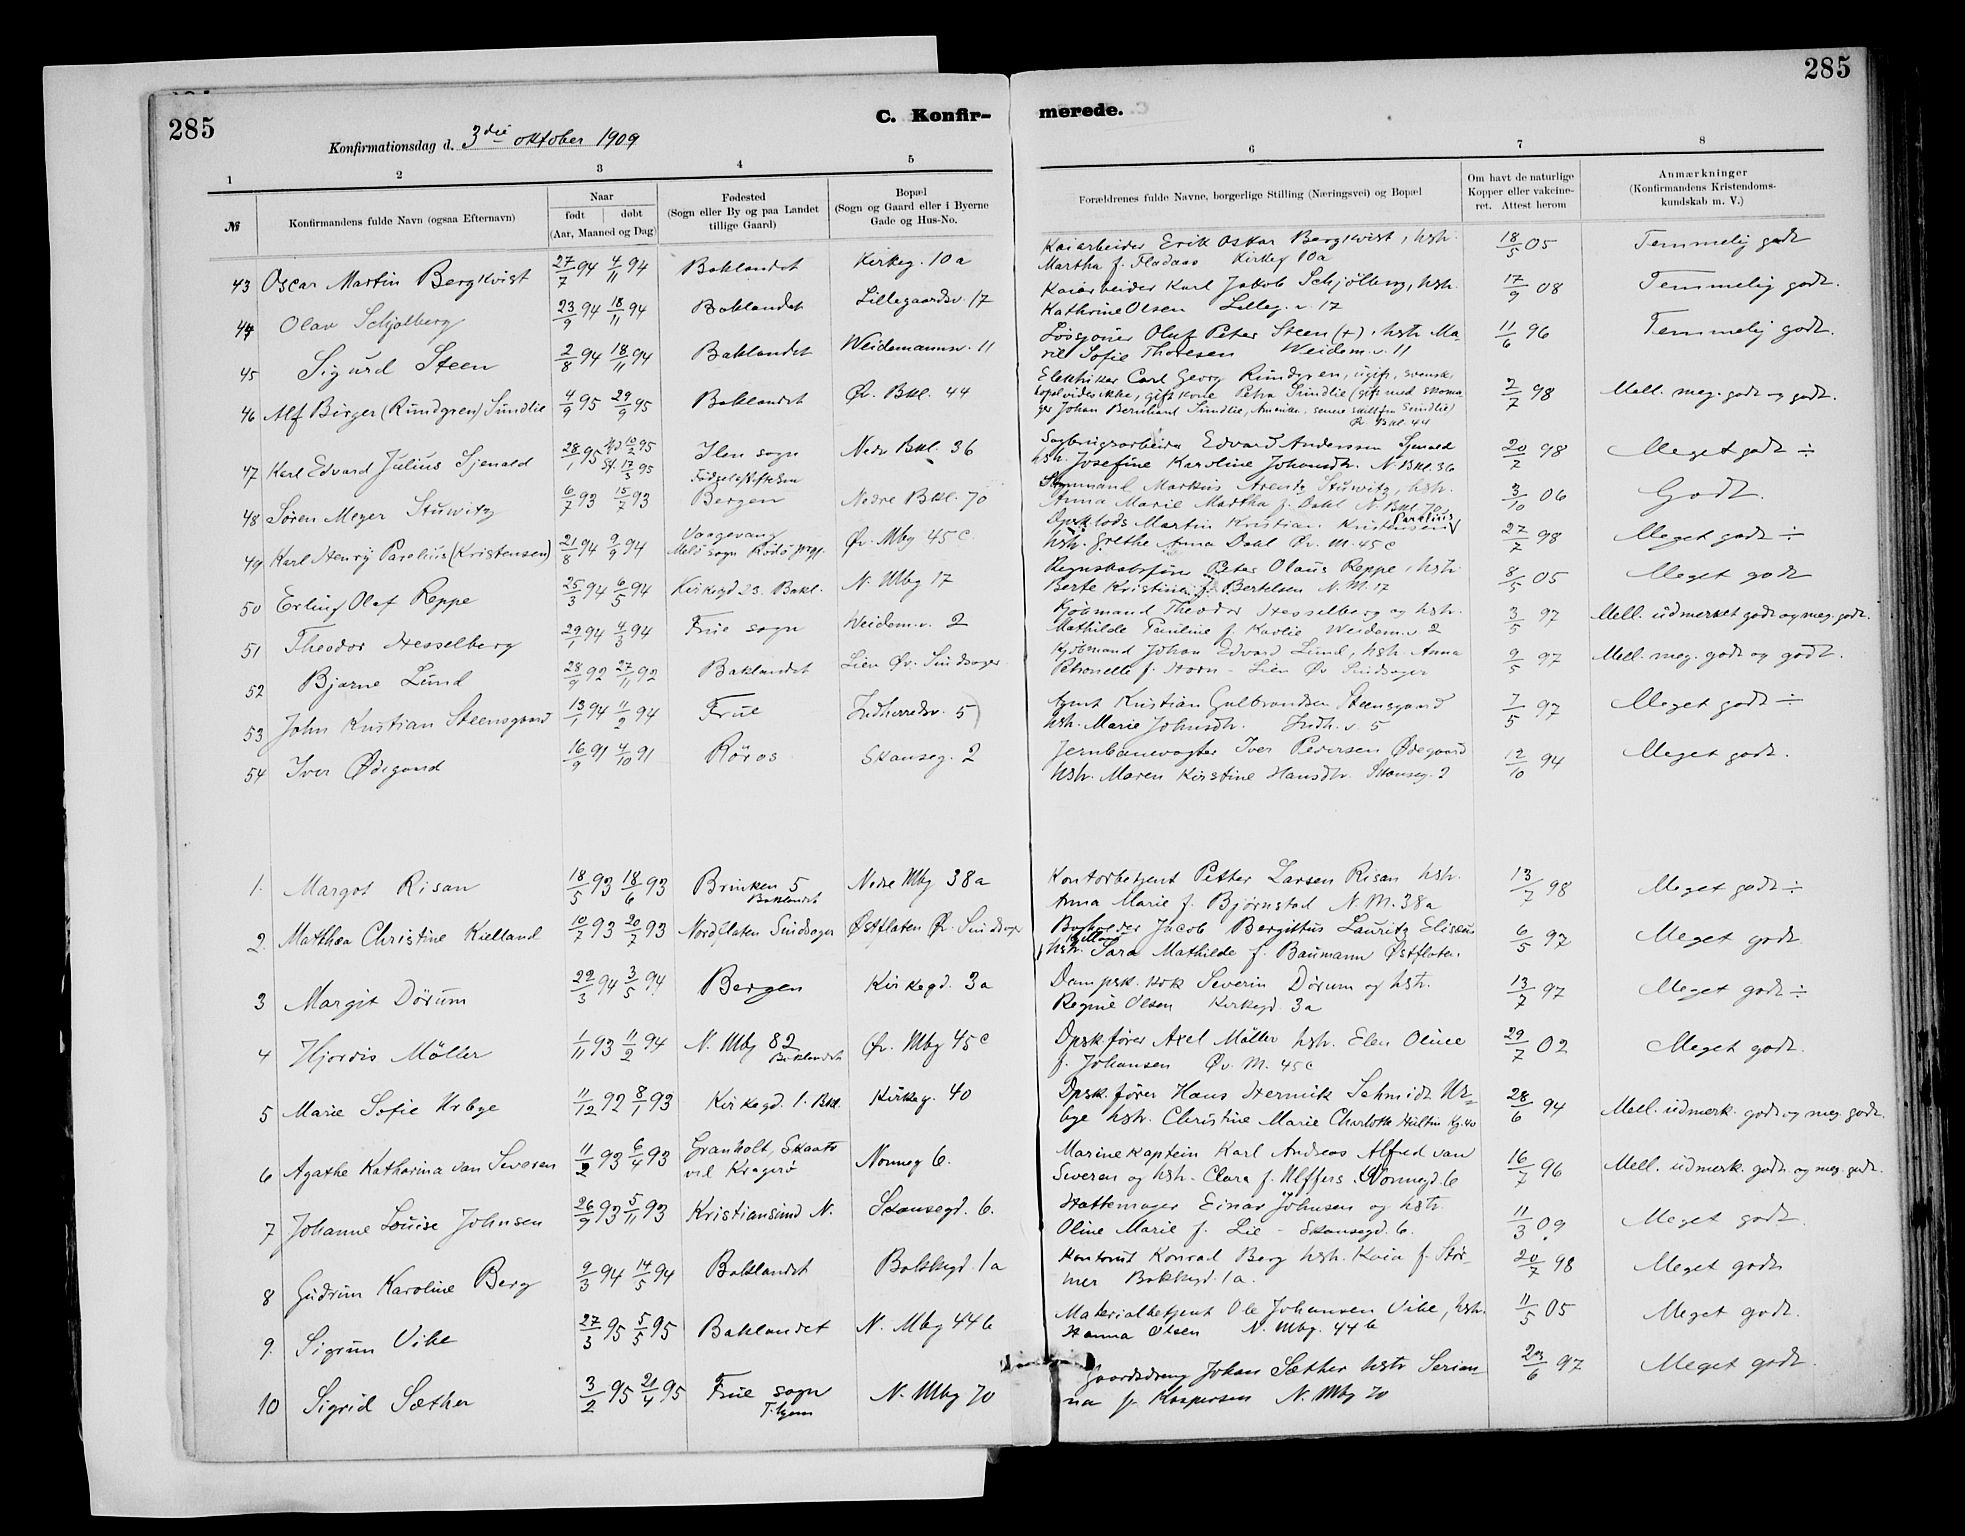 285
285
C. Konfir-
merede.
Konfirmationsdag d. 3die oktober 1909
1 2 3 4 5 6 7 8
№ Konfirmandens fulde Navn (ogsaa Efternavn)
Naar
født døbt
(Aar, Maaned og Dag)
Fødested
(Sogn eller By og paa Landet
tillige Gaard)
Bopæl
(Sogn og Gaard eller i Byerne
Gade og Hus-No.
Forældrenes fulde Navne, borgerlige Stilling (Næringsvei) og Bopæl
Om havt de naturlige
Kopper eller vakcine-
ret. Attest herom
Anmærkninger
(Konfirmandens Kristendoms-
kundskab m. V.)
43 Oscar Martin Bergkvist 27/7 94 4/11 94 Baklandet Kirkeg. 10a Kaiarbeider Erik Oskar Bergkvist, hstr. 18/5 05 Temmelig godt
Martha f. Fladaas Kirkeg 10a
44 Olav Schjølberg 23/9 94 18/11 94 Baklandet Lillegaardsv. 17 Kaiarbeider Karl Jakob Schjølberg, hstr. 17/9 08 Temmelig godt.
Kathrine Olsen Lilleg. v. 17
45 Sigurd Steen 2/8 94 18/11 94 Baklandet Weidemannsv. 11 Løsgjører Oluf Peter Steen (+), hstr Ma- 11/6 96 Temmelig godt.
rie Sofie Thoresen Weidem. v. 11
46 Alf Birger (Rundgren) Sundlie 4/9 95 29/9 95 Baklandet Øv. Bkl. 44 Elektriker Carl Georg Rundgren, ugift, svensk, 2/7 98 Mell. meg. godt og godt.
gift kone Petra Sundlie (gift med skoma-
ger Johan Bernhard Sundlie, Amerika, senere skilt fra Sundlie)
Øv Bkl. 44
47 Karl Edvard Julius Sjenald 28/1 95 Hd 10/2 95 St. 17/3 95 Ilen sogn Nedr Bkl. 36 Sagbrugsarbeider Edvard Andersen Sjenald 20/7 98 Meget godt ÷
Fødselsstiftelsen hstr. Josefine Karoline Johansdtr. N. Bkl. 36
48 Søren Meyer Stuwitz 6/7 93 15/7 93 Bergen Nedre Bkl. 70 Styrmand Markus Arentz Stuwitz, hstr. 3/10 06 Godt.
Anna Marie Martha f. Dahl N. Bkl 70
49 Karl Henry Parelius (Kristensen) 21/8 94 9/9 94 Vaagevang Melø sogn Rødø prgj. Øv. Mbg 45c Dpsklods Martin Kristian Kristensen Parelius 27/7 98 Meget godt ÷
hstr. Grethe Anna Dahl Øv. M. 45c
50 Erling Olaf Reppe 25/3 94 6/5 94 Kirkegd 23. Bakl. N. Mbg 17 Regnskabsfører Peter Olaus Reppe, hstr. 8/5 05 Meget godt
Berte Kristine f. Bertelsen N. M. 17
51 Theodor Hesselberg 29/1 94 4/3 94 Frue sogn Weidem. v. 2 Kjøbmand Theodor Hesselberg og hstr. 3/5 97 Mell. udmerket godt og meg. godt.
Mathilde Pauline f. Kavlie Weidem. v 2
52 Bjarne Lund 28/9 92 27/11 92 Baklandet Lien Øv. Sindsager Kjøbmand Johan Edvard Lund, hstr. Anna 9/5 97 Mell. meg. godt og godt.
Petronelle f. Horn - Lien Øv Sindsager
53 John Kristian Steensgaard 13/1 94 11/2 94 Frue Indherredsv. 5 Agent Kristian Gulbrandsen Steensgaard 7/5 97 Meget godt ÷
hstr. Marie Johnsdtr. Indh. v. 5
54 Iver Ødegaard 16/9 91 4/10 91 Røros Skanseg. 2 Jernbanevogter Iver Pedersen Ødegaard 12/10 94 Meget godt.
hstr. Maren Kirstine Hansdtr. Skanseg. 2
1. Margot Risan 18/5 93 18/6 93 Brinken 5 Baklandet Nedre Mbg 38a Kontorbetjent Petter Larsen Risan hstr. 13/7 98 Meget godt ÷
Anna Marie f. Bjørnstad N. M. 38a
2. Matthea Christine Kielland 10/7 93 20/7 93 Nordflaten Sindsager Østflaten Øv. Sindsager Bogholder Jacob Bergittus Lauritz Elisæus Kielland 6/5 97 Meget godt
hstr. Sara Mathilde f. Baumann Østflaten.
3 Margit Dørum 22/3 94 3/5 94 Bergen Kirkegd. 3a Dampsk. kok Severin Dørum og hstr. 13/7 97 Meget godt ÷
Regine Olsen Kirkegd. 3a
4 Hjordis Møller 1/11 93 11/2 94 N. Mbg 82 Baklandet Øv. Mbg 45c Dpsk.fører Axel Møller hstr. Elen Oline 29/7 02 Meget godt.
f. Johansen Øv. M. 45c
5 Marie Sofie Urbye 11/12 92 8/1 93 Kirkegd. 1. Bkl. Kirkeg. 40 Dpsk.fører Hans Hermik Schmidt Ur- 28/6 94 Mell. udmerk. godt og meg. godt.
bye hstr. Christine Marie Charlotte Hultin Kg. 40
6 Agathe Katharina van Severen 11/2 93 6/4 93 Granholt, Skaatø ved Kragerø Nonneg 6. Marinekaptein Karl Andreas Alfred van 16/7 96 Mell. udmerk. godt og meg. godt.
Severen og hstr. Clara f. Ulffers. Nonnegd. 6
7 Johanne Louise Johnsen 26/9 93 5/11 93 Kristiansund N. Skansegd. 6. Hattemager Einar Johnsen og hstr. 11/3 09 Meget godt.
Oline Marie f. Lie - Skansegd. 6.
8 Gudrun Karoline Berg 9/3 94 14/5 94 Baklandet Bakkegd. 1a Kontorist Konrad Berg hstr. Kaia f. Stør- 20/7 98 Meget godt
mer Bakkegd. 1a.
9. Sigrun Vibe 27/3 95 5/5 95 Baklandet N. Mbg 44b Materialbetjent Ole Johansen Vibe, hstr. 11/5 05 Meget godt.
Hanna Olsen N. Mbg. 44b
10 Sigrid Sæther 3/2 95 21/4 95 Frue sogn T.hjem N. Mbg 70 Gaardsdreng Johan Sæther hstr Serian- 29/6 97 Meget godt.
na f. Kaspersen N. Mbg 70